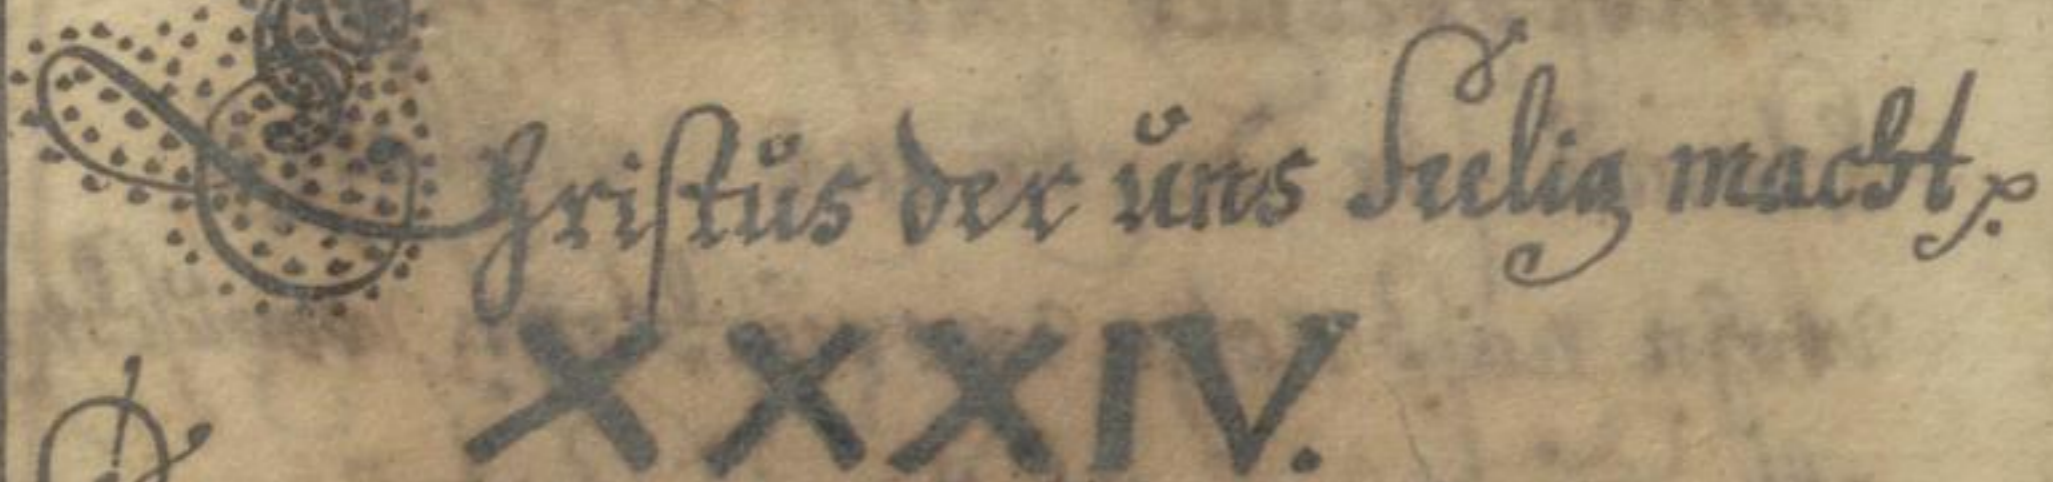 Christus der uns Seelig macht.
XXXIV.